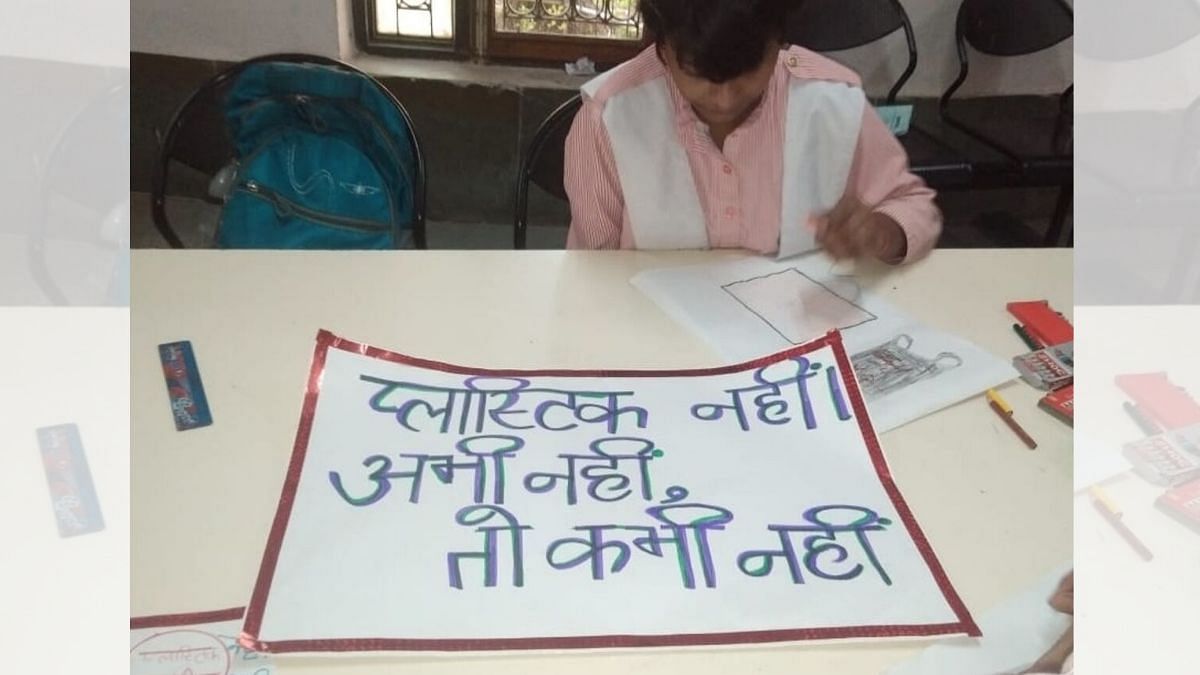 प्लास्टिक नहीं।
अभी नहीं,
तो कभी नहीं